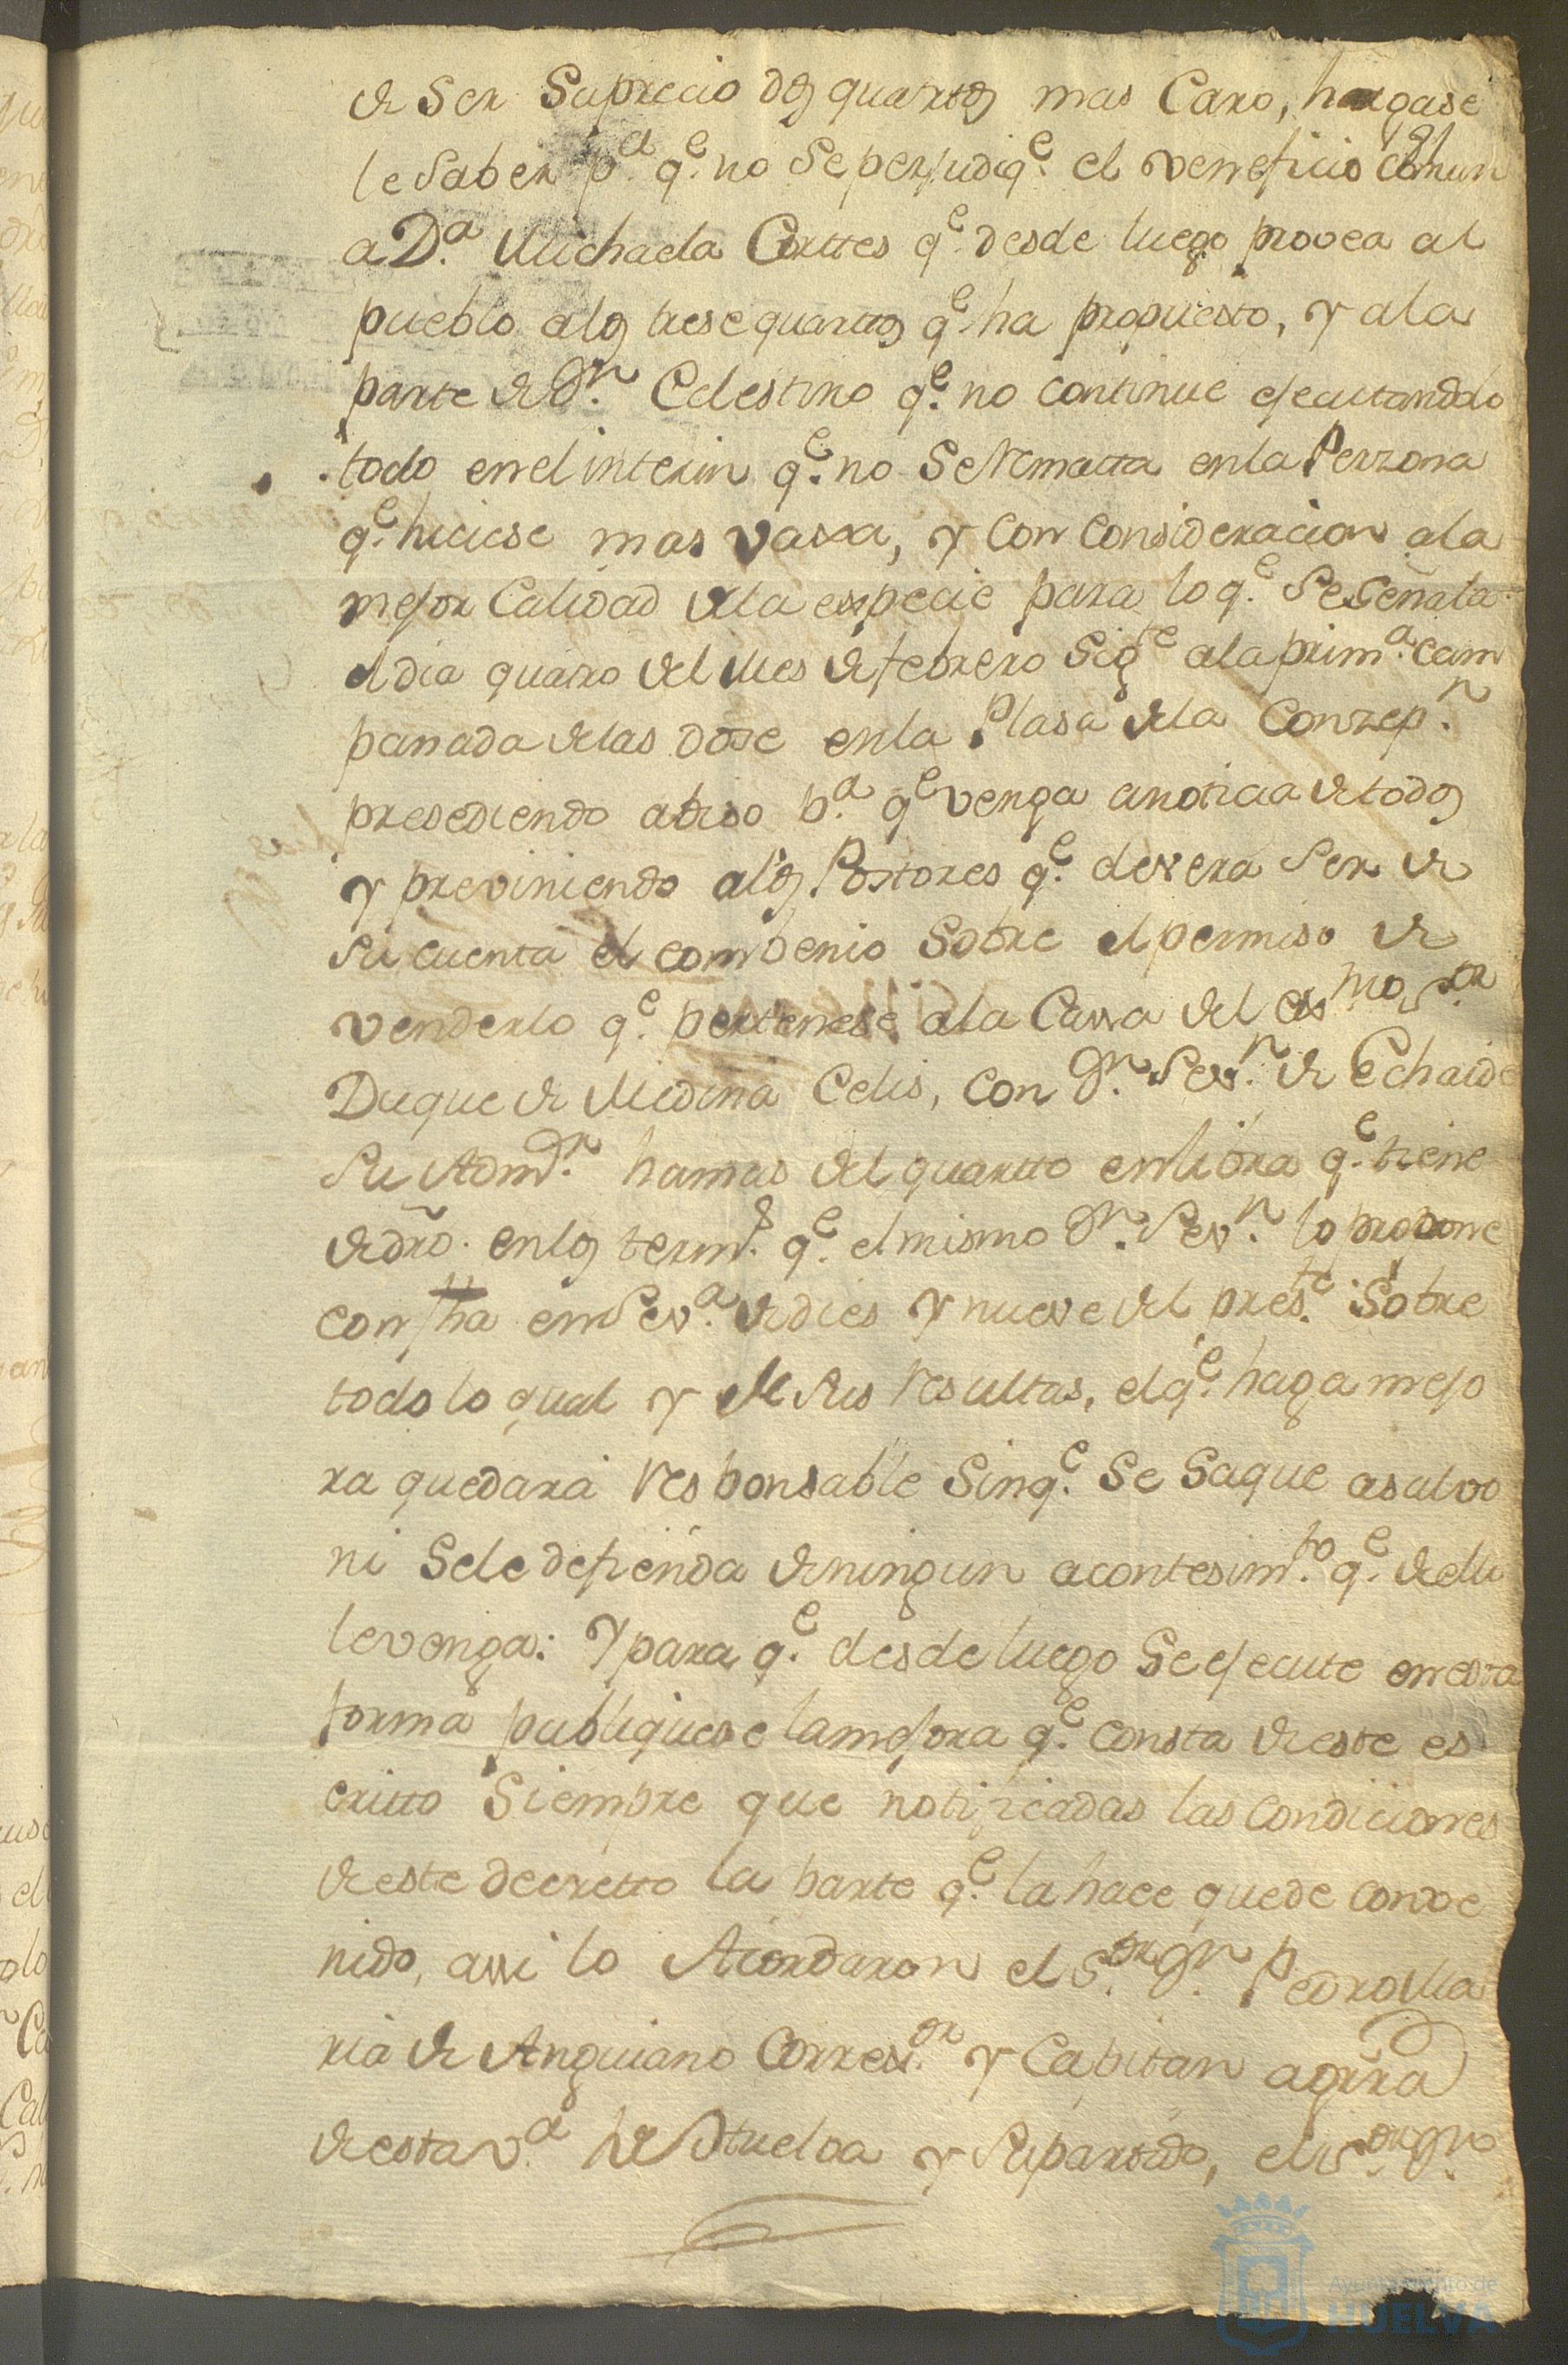 de Ser Suprecio dos quartos mas Caro, hagase
le Saber p.a q.e no Seperjudiq.e el veneficio comun
a D.a Michaela Corttes q.e desde luego provea al
pueblo alos trese quartos q.e ha propuesto, y ala
parte de Dn. Celestino q.e no continue ejecutandolo
todo enelinterin q.e no SeRematta enla Perzona
q.e hiciese mas vaxa, y con consideracion ala
mejor Calidad dela expecie para loq.e Seseñala
eldia quatro del Mes de febrero Sigte ala prim.a cam
panada delas dose enla Plasa dela Conzep.n
presediendo abiso p.a q.e venga anoticia detodos
y previniendo alos Postores q.e devera Ser de
su cuenta el combenio Sobre elpermiso de
venderlo q.e pertenese ala Cassa del exmo Sor
Duque de Medina Celis, con Dn. Sevn. de Echaide
su Admor. hamas del quartto enlibra q.e tiene
dedro. enlos term.s q.e elmismo Dn. Sevn. lo propone
con fha en Sev.a dedies y nueve del pres.te Sobre
todo lo qual y de sus resultas, elq.e haga mejo
ra quedará responsable Sinq.e Se Saque asalvo
ni Sele defienda deningun acontesim.to q.e dello
levenga: Y para q.e desde luego Se ejecute enesta
forma publiquese lamejora q.e consta deeste es
critto Siempre que notificadas las condiciones
deeste decretto la parte q.e la hace quede conve
nido, assi lo Acordaron el S.or Dn. Pedro Ma
ria de Anguiano Correx.or y Capitan aGrra
deesta v.a de Huelva y Supartido, el S.or Dn.
Ayuntamiento de
HUELVA